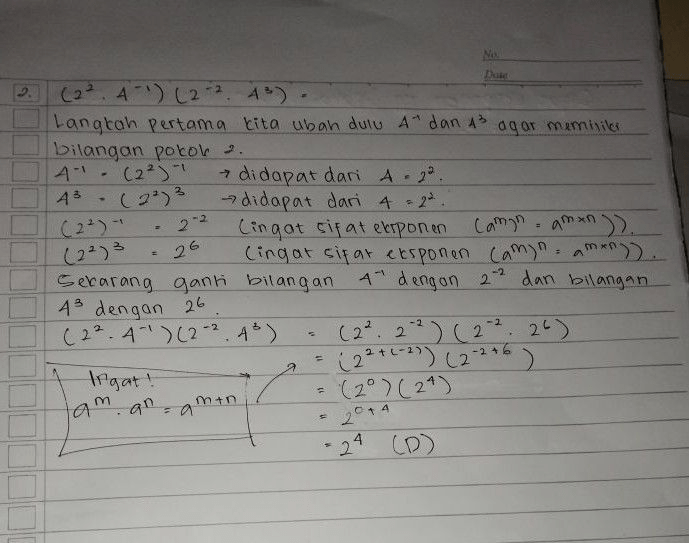 No.
Date
2. (2² . 4⁻¹) (2⁻² . 4³) =
Langkah pertama kita ubah dulu 4⁻¹ dan 4³ agar memiliki
bilangan pokok 2.
4⁻¹ = (2²)⁻¹ → didapat dari 4 = 2².
4³ = (2²)³ → didapat dari 4 = 2².
(2²)⁻¹ = 2⁻² (ingat sifat eksponen (aᵐ)ⁿ = aᵐˣⁿ)).
(2²)³ = 2⁶ (ingat sifat eksponen (aᵐ)ⁿ = aᵐˣⁿ)).
Sekarang ganti bilangan 4⁻¹ dengan 2⁻² dan bilangan
4³ dengan 2⁶.
(2² . 4⁻¹) (2⁻² . 4³) = (2² . 2⁻²) (2⁻² . 2⁶)
= (2²⁺⁽⁻²⁾) (2⁻²⁺⁶)
= (2⁰) (2⁴)
= 2⁰⁺⁴
= 2⁴ (D)
Ingat!
aᵐ . aⁿ = aᵐ⁺ⁿ